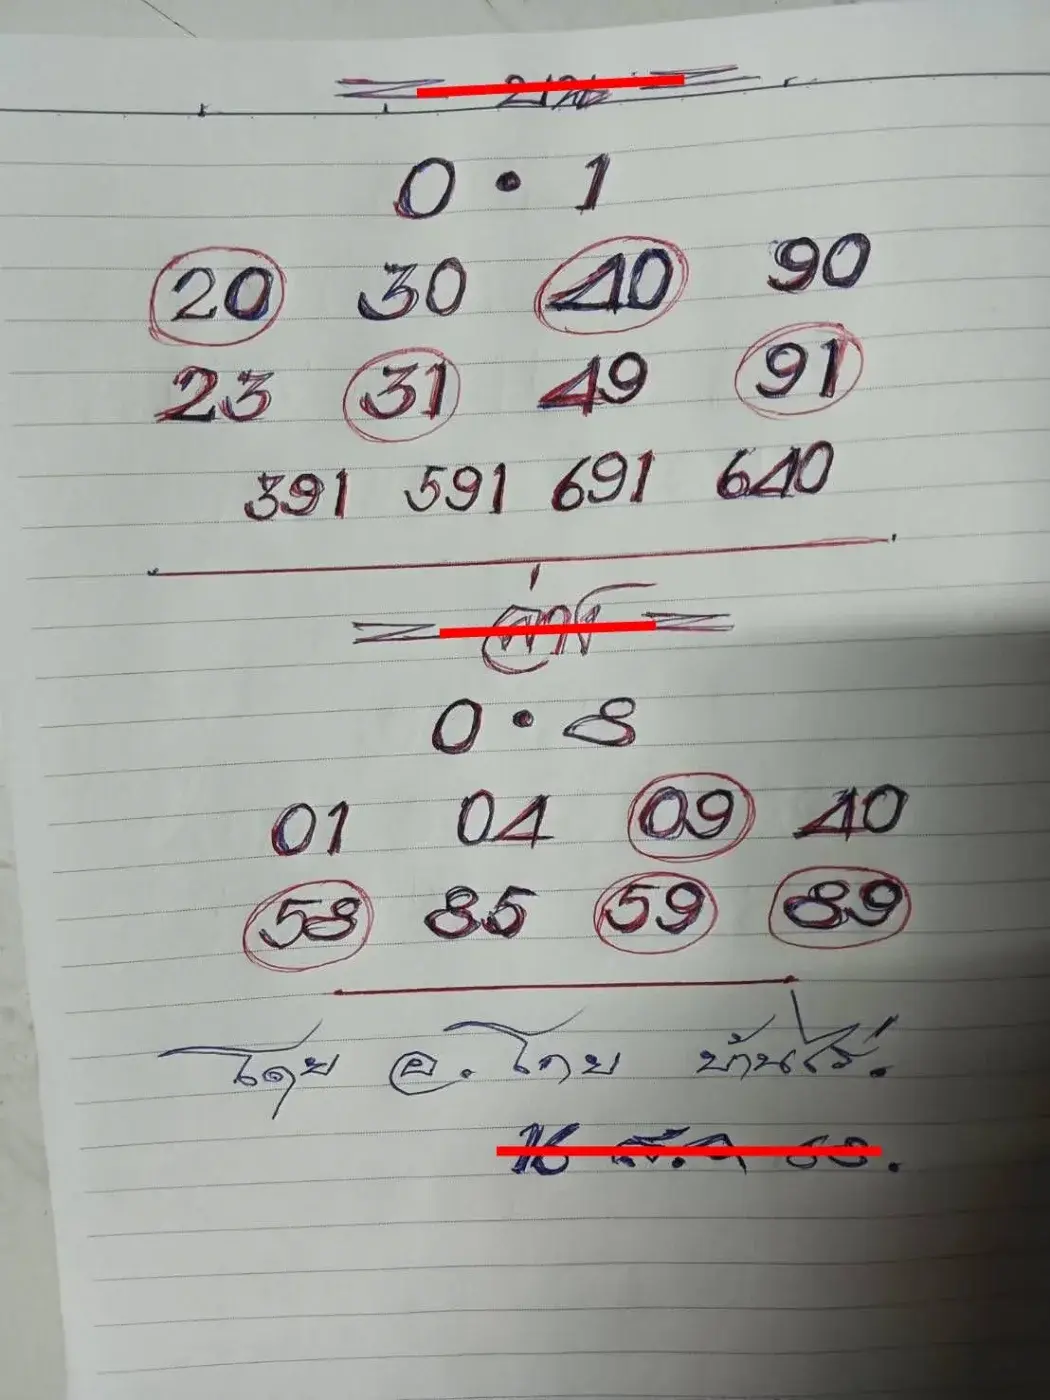 0 • 1
20 30 40 90
23 31 49 91
391 591 691 640
ล่าง
0 • 8
01 04 09 40
58 85 59 89
โดย อ. โกย บ้านไร่.
16 ส.ค